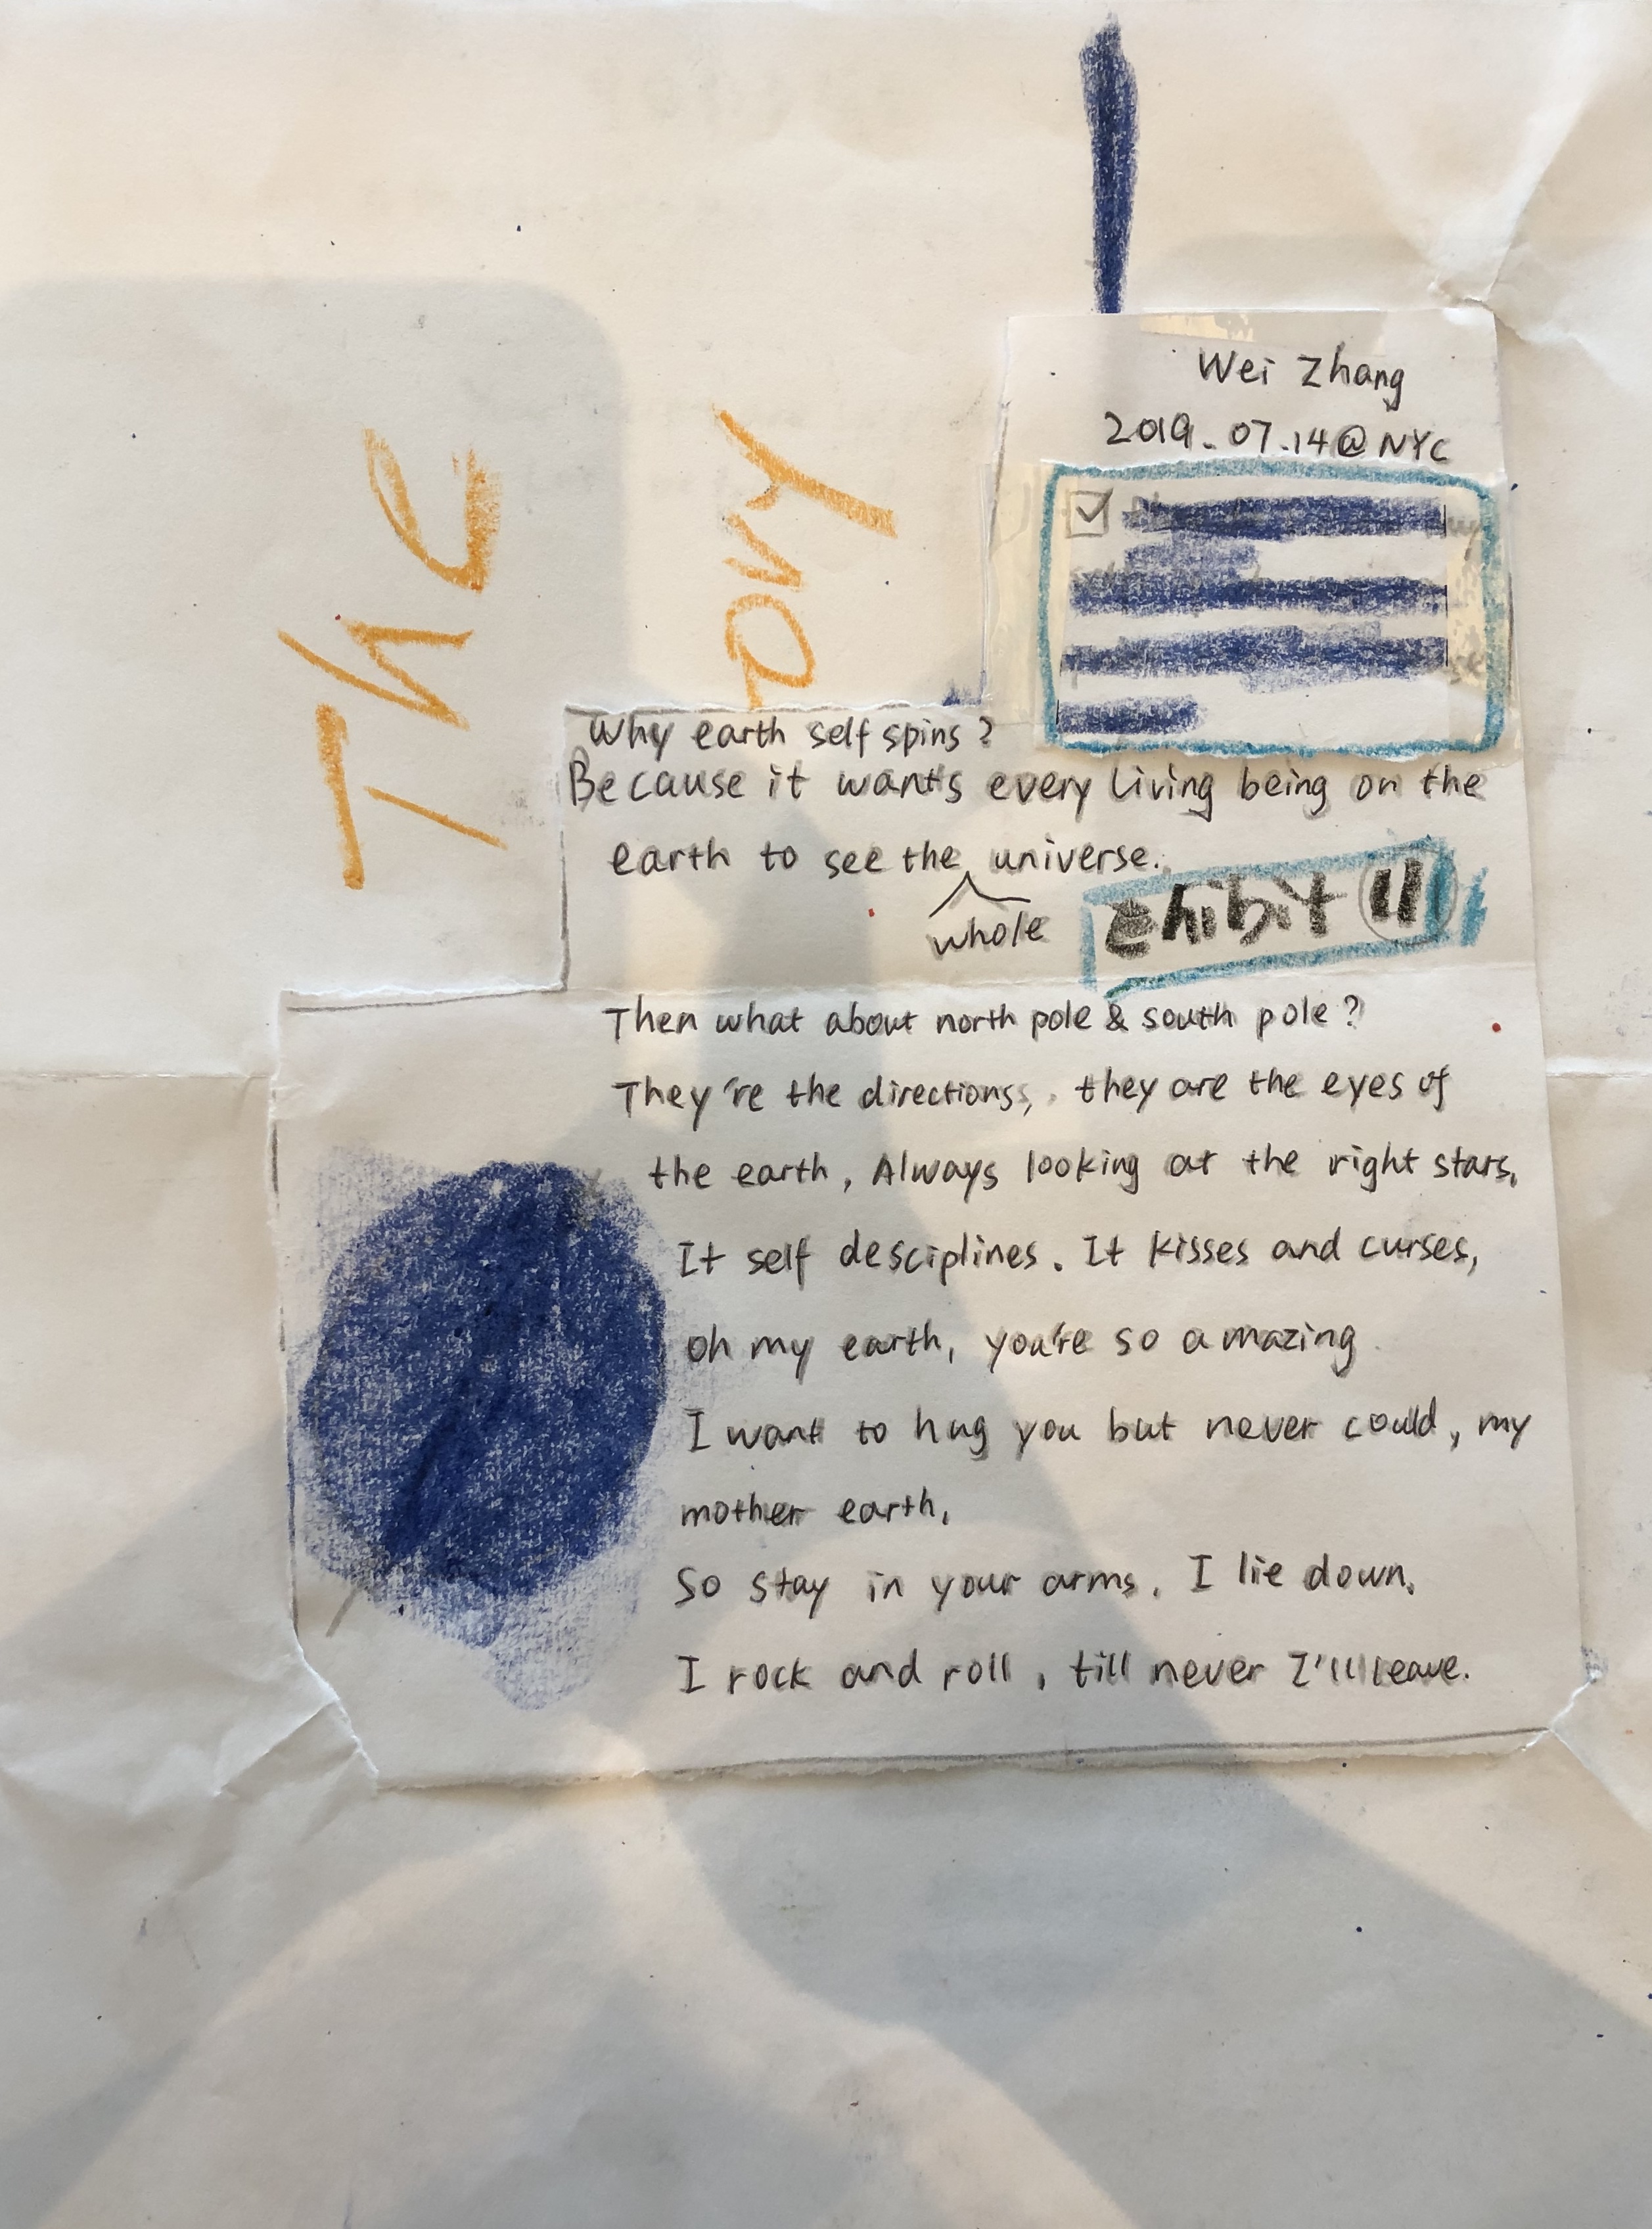 The
ory
Wei Zhang
2019.07.14@NYC
Why earth self spins?
Because it wants every living being on the
earth to see the universe.
whole
exhibit 11
Then what about north pole & south pole?
They're the directions, they are the eyes of
the earth, Always looking at the right stars,
It self desciplines. It kisses and curses,
oh my earth, you're so amazing
I want to hug you but never could, my
mother earth,
So stay in your arms, I lie down,
I rock and roll, till never I'll leave.